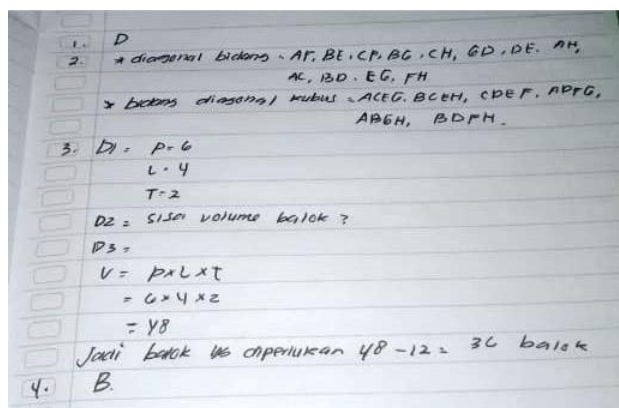 1. D
2. * diagonal bidang = AF, BE, CF, BG, CH, GD, DE. AH,
AC, BD. EG, FH
* bidang diagonal kubus = ACEG. BCEH, CDEF, ADFG,
ABGH, BDFH.
3. D1 = P = 6
L = 4
T = 2
D2 = sisa volume balok ?
D3 =
V = P x L x t
= 6 x 4 x 2
= 48
Jadi balok yg diperlukan 48 - 12 = 36 balok
4. B.